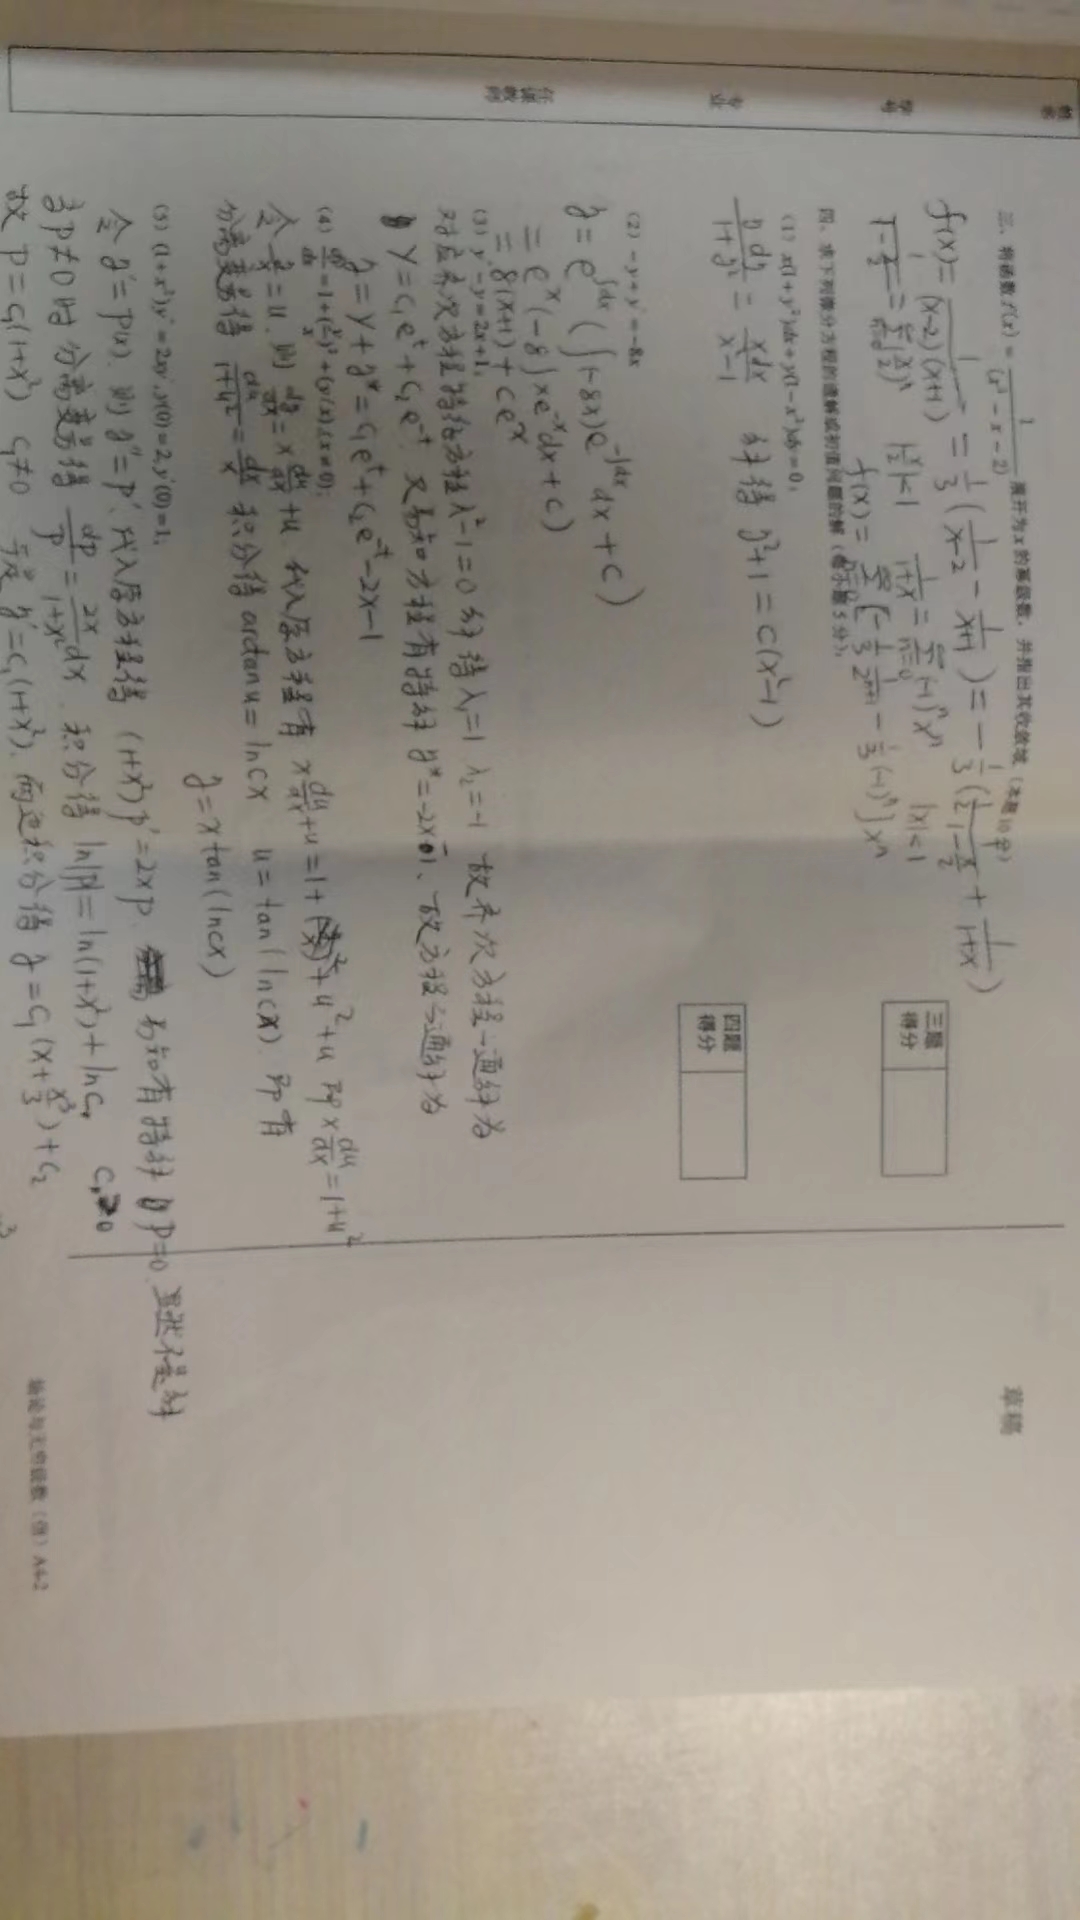 姓名
学号
专业
任课教师
草稿
三、将函数f(x)=1/(x²-x-2)展开为x的幂级数，并指出其收敛域（本题10分）
f(x)=1/((x-2)(x+1))=1/3(1/(x-2)-1/(x+1))=-1/3(1/2 1/(1-x/2)+1/(1+x))
1/(1-x/2)=∑(n=0→∞)(x/2)ⁿ |x/2|<1 1/(1+x)=∑(n=0→∞)(-1)ⁿxⁿ |x|<1
三题得分
f(x)=∑(n=0→∞)[-1/3 1/2ⁿ⁺¹-1/3(-1)ⁿ]xⁿ
四、求下列微分方程的通解或初值问题的解（每小题5分）：
（1）x(1+y²)dx+y(1-x²)dy=0；
ydy/(1+y²)=xdx/(x²-1) 解得 y²+1=C(x²-1)
四题得分
（2）-y+y'=-8x
y=e^∫dx(∫(-8x)e^-∫dx dx+C)
=eˣ(-8∫xe⁻ˣdx+C)
=8(x+1)+Ceˣ
（3）y''-y=2x+1；
对应齐次方程特征方程λ²-1=0解得λ₁=1 λ₂=-1 故齐次方程通解为
Y=C₁eᵗ+C₂e⁻ᵗ. 又易知方程有特解y*=-2x-1、故方程通解为
y=Y+y*=C₁eᵗ+C₂e⁻ᵗ-2x-1
（4）dy/dx=1+(y/x)²+(y/x),(x≠0)；
令y/x=u. 则dy/dx=x du/dx+u. 代入原方程有 x du/dx+u=1+u²+u 即x du/dx=1+u²
分离变量得 du/(1+u²)=dx/x 积分得arctanu=lnCx u=tan(lnCx). 即有
y=xtan(lnCx)
（5）(1+x²)y''=2xy',y(0)=2,y'(0)=1；
令y'=p(x). 则y''=p'. 代入原方程得 (1+x²)p'=2xp. 易知有特解p=0. 显然不是解
当p≠0时分离变量得 dp/p=2x/(1+x²)dx. 积分得 ln|p|=ln(1+x²)+lnC₀ C₀>0
故p=C₁(1+x²) C₁≠0 于是y'=C₁(1+x²). 两边积分得y=C₁(x+x³/3)+C₂
场论与无穷级数（信）A4-2